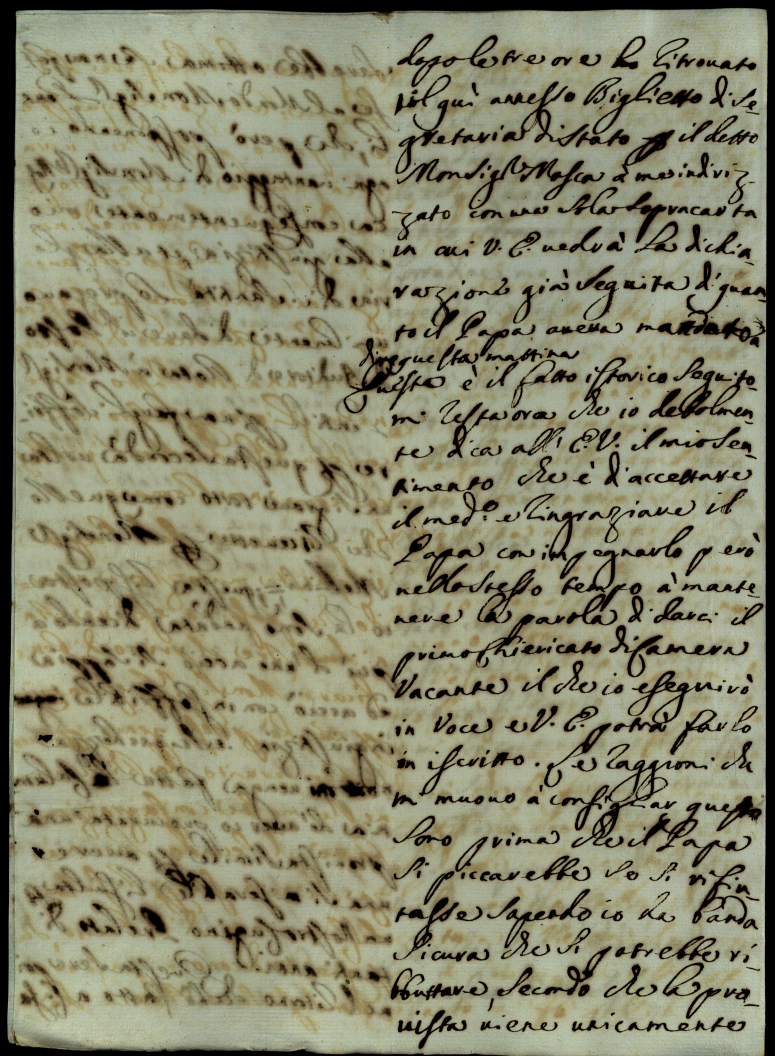 dopo le tre ore ho ritrouato
il quì annesso Biglietto di Se-
gretaria di Stato p il detto
Monsig.r Mosca à me indiriz-
zato con una sola sopracarta
in cui V. E. uedrà la dichia-
razzione già seguita di quan-
to il Papa aueua mandato à
dire questa mattina
Questa è il fatto istorico seguito.
mi resta ora che io debolmen-
te dica all' E. V. il mio sen-
timento che è d'accettare
il med.o e ringraziare il
Papa con impegnarlo però
nello stesso tempo à mante-
nere la parola di darci il
primo Chiericato di Camera
Vacante il che io eseguirò
in voce e V. E. potrà farlo
in iscritto. Le raggioni che
mi muouo à consigliar questo
sono prima che il Papa
si piccarebbe se si rifiu-
tasse sapendo io da banda
sicura che si potrebbe ri-
buttare, secondo che la pro-
uista uiene unicamente